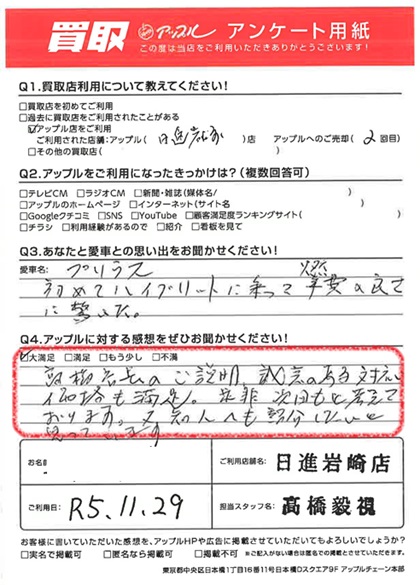 買取 アップル アンケート用紙
この度は当店をご利用いただきありがとうございます！
Q1.買取店利用について教えてください！
□買取店を初めてご利用
□過去に買取店をご利用されたことがある
☑アップル店をご利用
ご利用された店舗：アップル（日進岩崎）店 アップルへのご売却（2回目）
□その他の買取店（ ）
Q2.アップルをご利用になったきっかけは？（複数回答可）
□テレビCM □ラジオCM □新聞・雑誌（媒体名/ ）
□アップルのホームページ □インターネット（サイト名 ）
□Googleクチコミ □SNS □YouTube □顧客満足度ランキングサイト（ ）
□チラシ □利用経験があるので □紹介 □看板を見て
Q3.あなたと愛車との思い出をお聞かせください！
愛車名：プリウス
初めてハイブリットに乗って燃費の良さ
に驚いた。
Q4.アップルに対する感想をぜひお聞かせください！
☑大満足 □満足 □もう少し □不満
店長のご説明 誠意のある対応
価格も満足。是非 次回もと考えて
おります。又知人へも紹介したいと
思っています
お名
ご利用店舗名：日進岩崎店
ご利用日：R5.11.29
担当スタッフ名：高橋毅視
お客様に書いていただいた感想を、アップルHPや広告に掲載させていただいてもよろしいでしょうか？
□実名で掲載可 □匿名なら掲載可 □掲載不可 ※ご記入がない場合は匿名での掲載とさせていただきます。
東京都中央区日本橋1丁目16番11号日本橋Dスクエア9F アップルチェーン本部